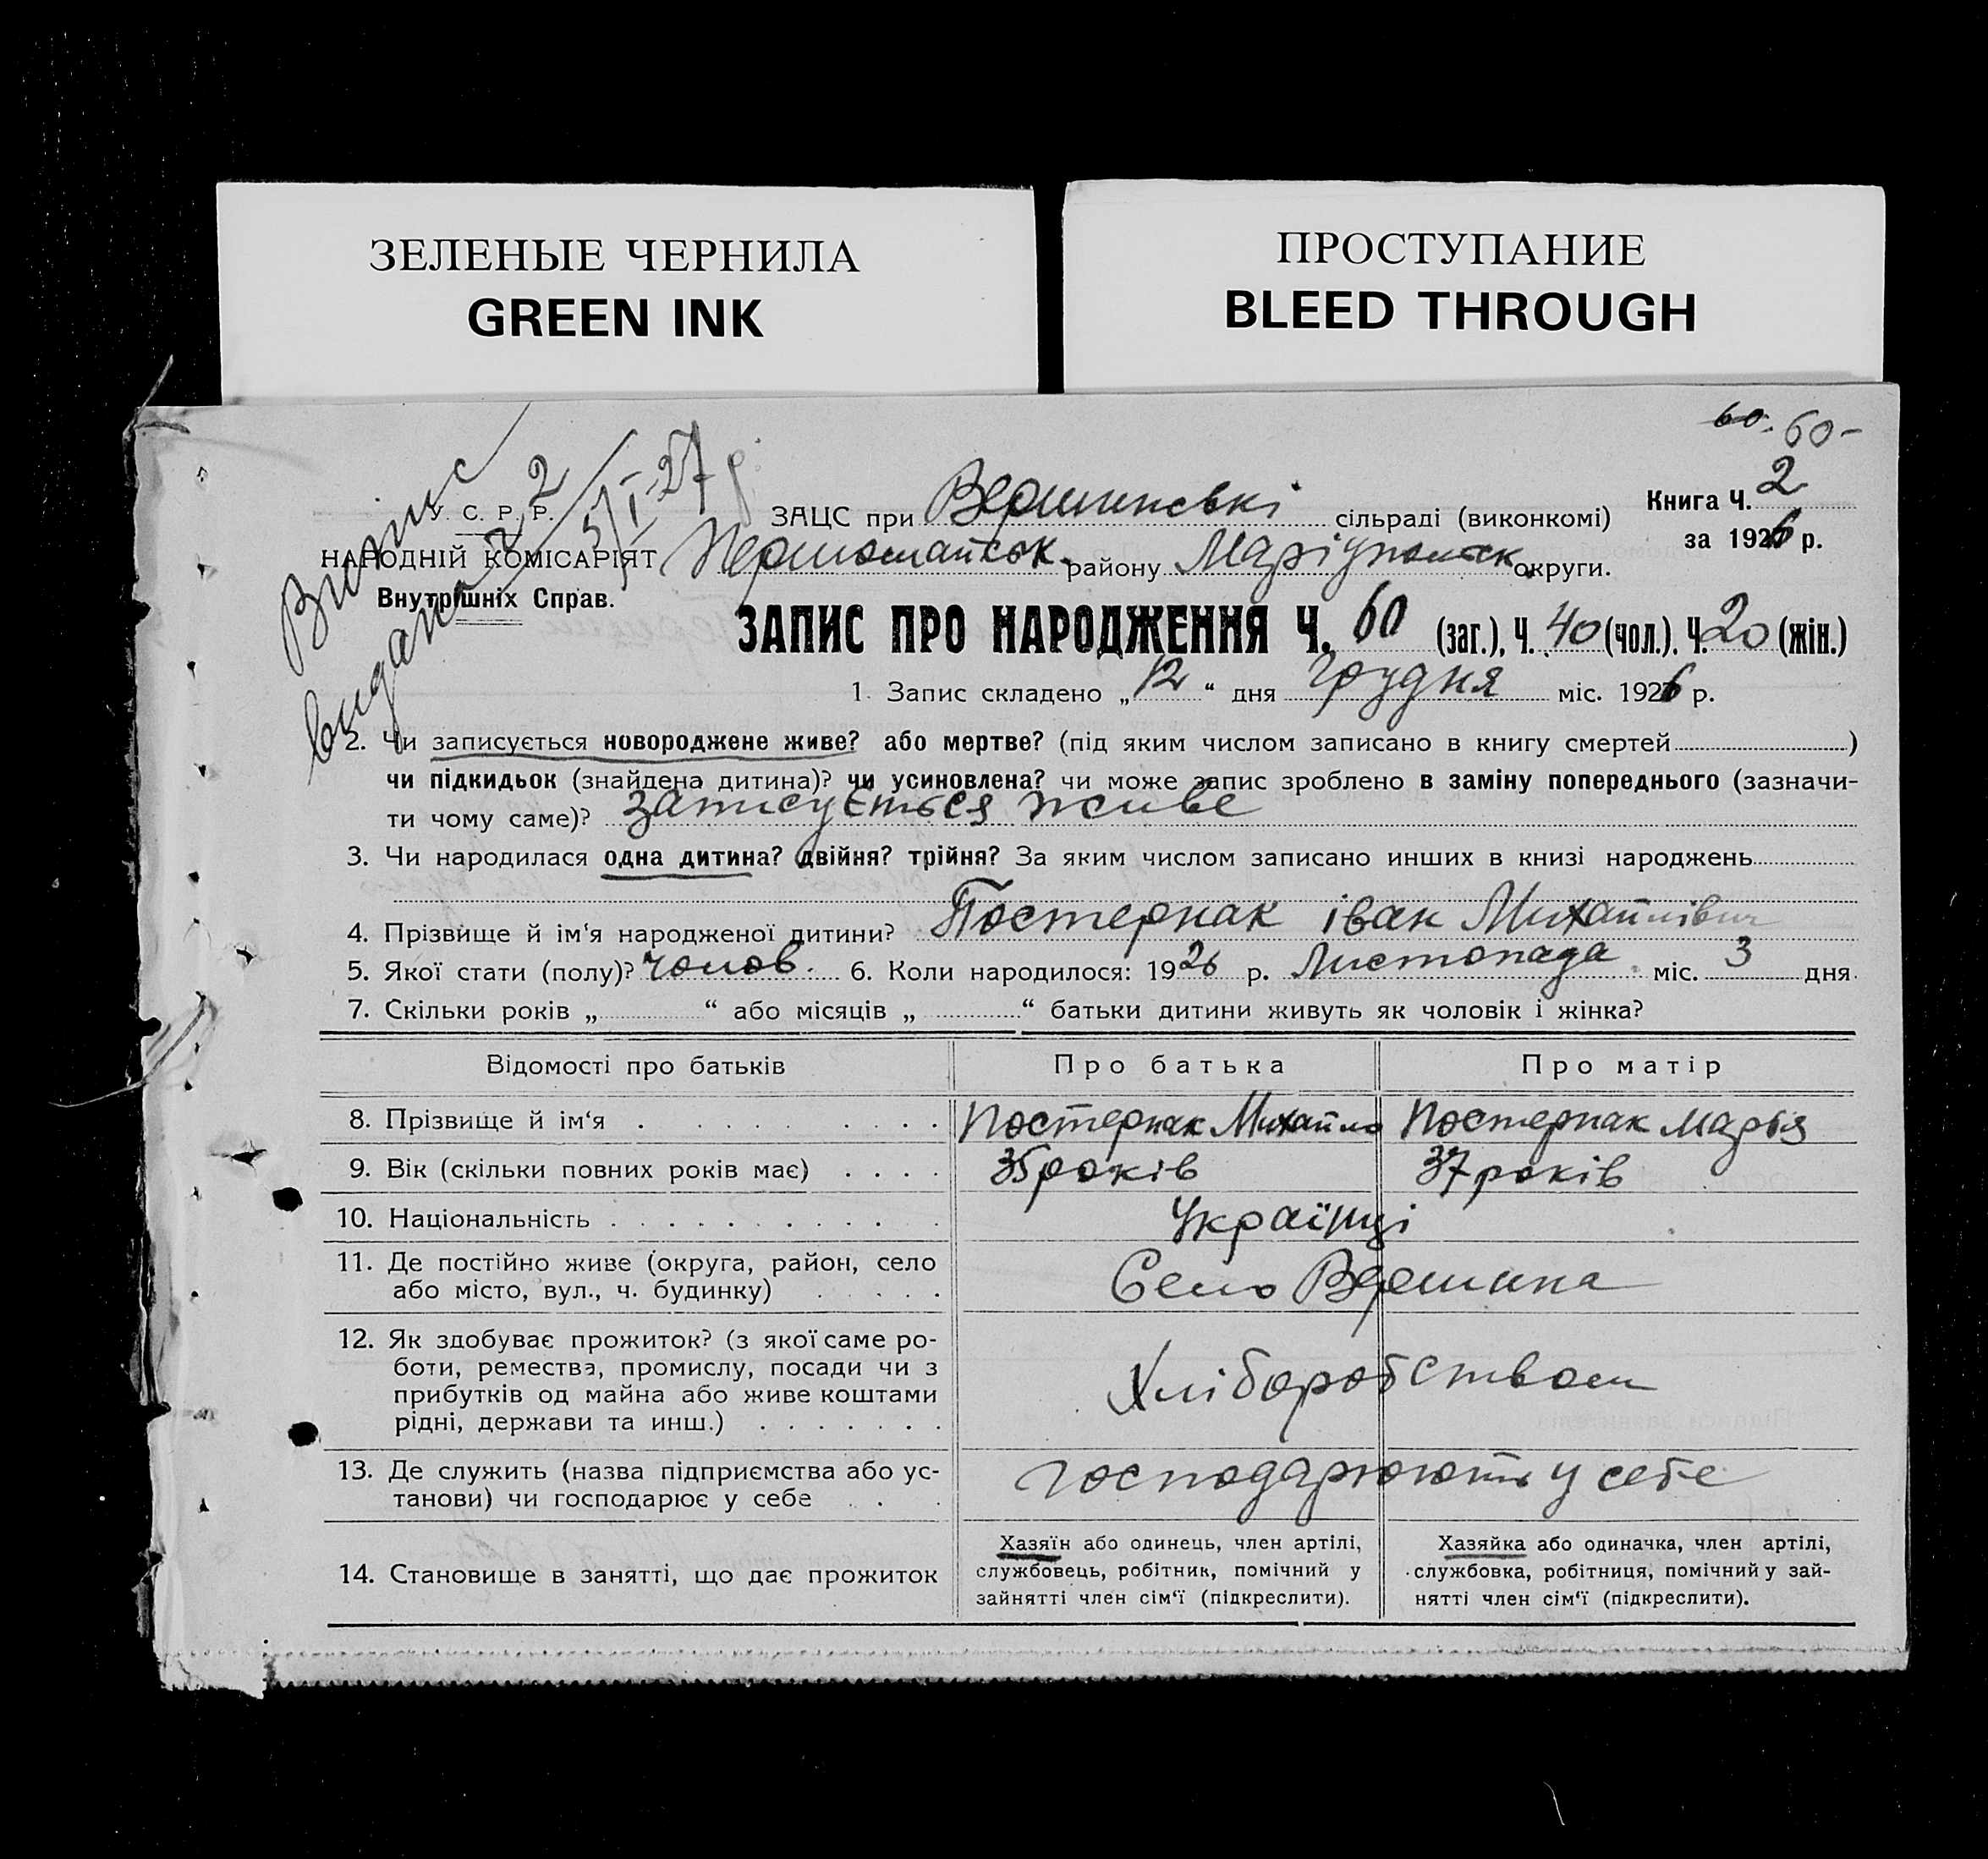 ЗЕЛЕНЫЕ ЧЕРНИЛА
GREEN INK
ПРОСТУПАНИЕ
BLEED THROUGH
60. 60-
Випис
видана 22/5/I-27 р.
У. С. Р. Р.
НАРОДНІЙ КОМІСАРІЯТ
Внутрішніх Справ.
ЗАЦС при Вершинські сільраді (виконкомі)
Першомайськ. району Маріупольськ. округи.
Книга Ч. 2
за 1926 р.
ЗАПИС ПРО НАРОДЖЕННЯ Ч. 60 (заг.), Ч. 40 (чол.). Ч. 20 (жін.)
1. Запис складено „12“ дня грудня міс. 1926 р.
2. Чи записується новороджене живе? або мертве? (під яким числом записано в книгу смертей)
чи підкидьок (знайдена дитина)? чи усиновлена? чи може запис зроблено в заміну попереднього (зазначи-
ти чому саме)? записується живе
3. Чи народилася одна дитина? двійня? трійня? За яким числом записано инших в книзі народжень
4. Прізвище й ім‘я народженої дитини? Постернак іван Михайлівич
5. Якої стати (полу)? чолов. 6. Коли народилося: 1926 р. Листопада міс. 3 дня
7. Скільки років „ “ або місяців „ “ батьки дитини живуть як чоловік і жінка?
Відомості про батьків Про батька Про матір
8. Прізвище й ім‘я Постернак Михайло Постернак Марья
9. Вік (скільки повних років має) 35 років 37 років
10. Національність Українці
11. Де постійно живе (округа, район, село
або місто, вул., ч. будинку) Село Вершина
12. Як здобуває прожиток? (з якої саме ро-
боти, ремества, промислу, посади чи з
прибутків од майна або живе коштами
рідні, держави та инш.) Хліборобством
13. Де служить (назва підприємства або ус-
танови) чи господарює у себе господарюють у себе
14. Становище в занятті, що дає прожиток
Хазяїн або одинець, член артілі,
службовець, робітник, помічний у
зайнятті член сім‘ї (підкреслити).
Хазяйка або одиначка, член артілі,
службовка, робітниця, помічний у зай-
нятті член сім‘ї (підкреслити).